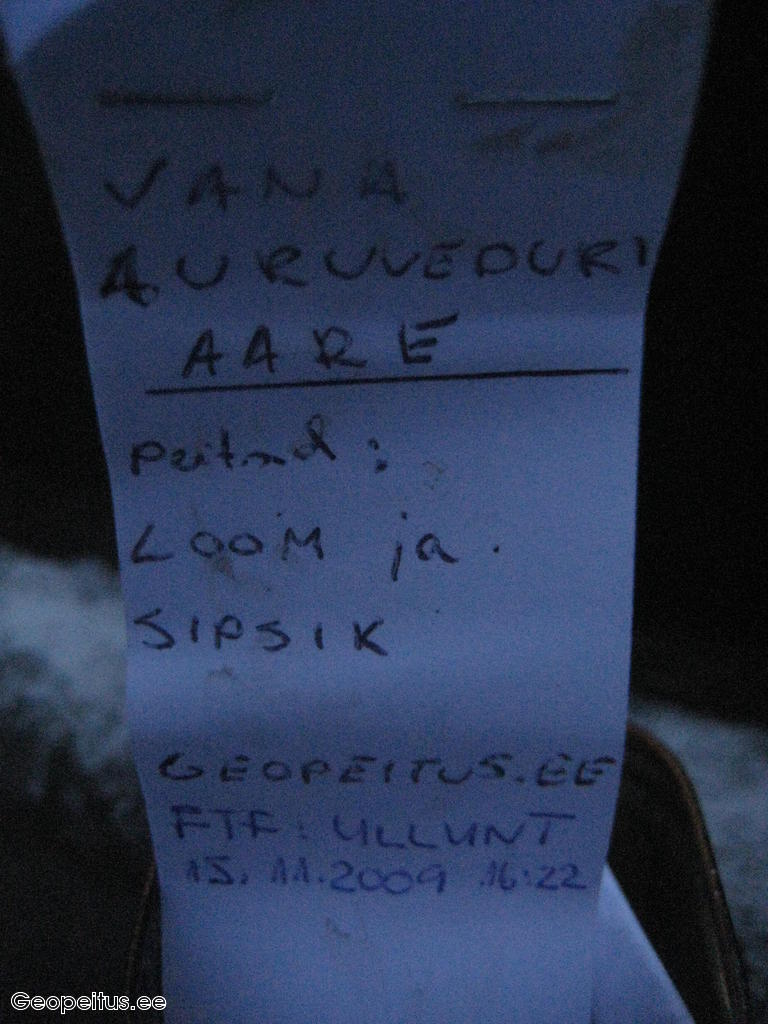 VANA
AURUVEDURI
AARE
peitnud:
LOOM ja
SIPSIK
GEOPEITUS.EE
FTF: ULLUNT
15.11.2009 16:22
Geopeitus.ee